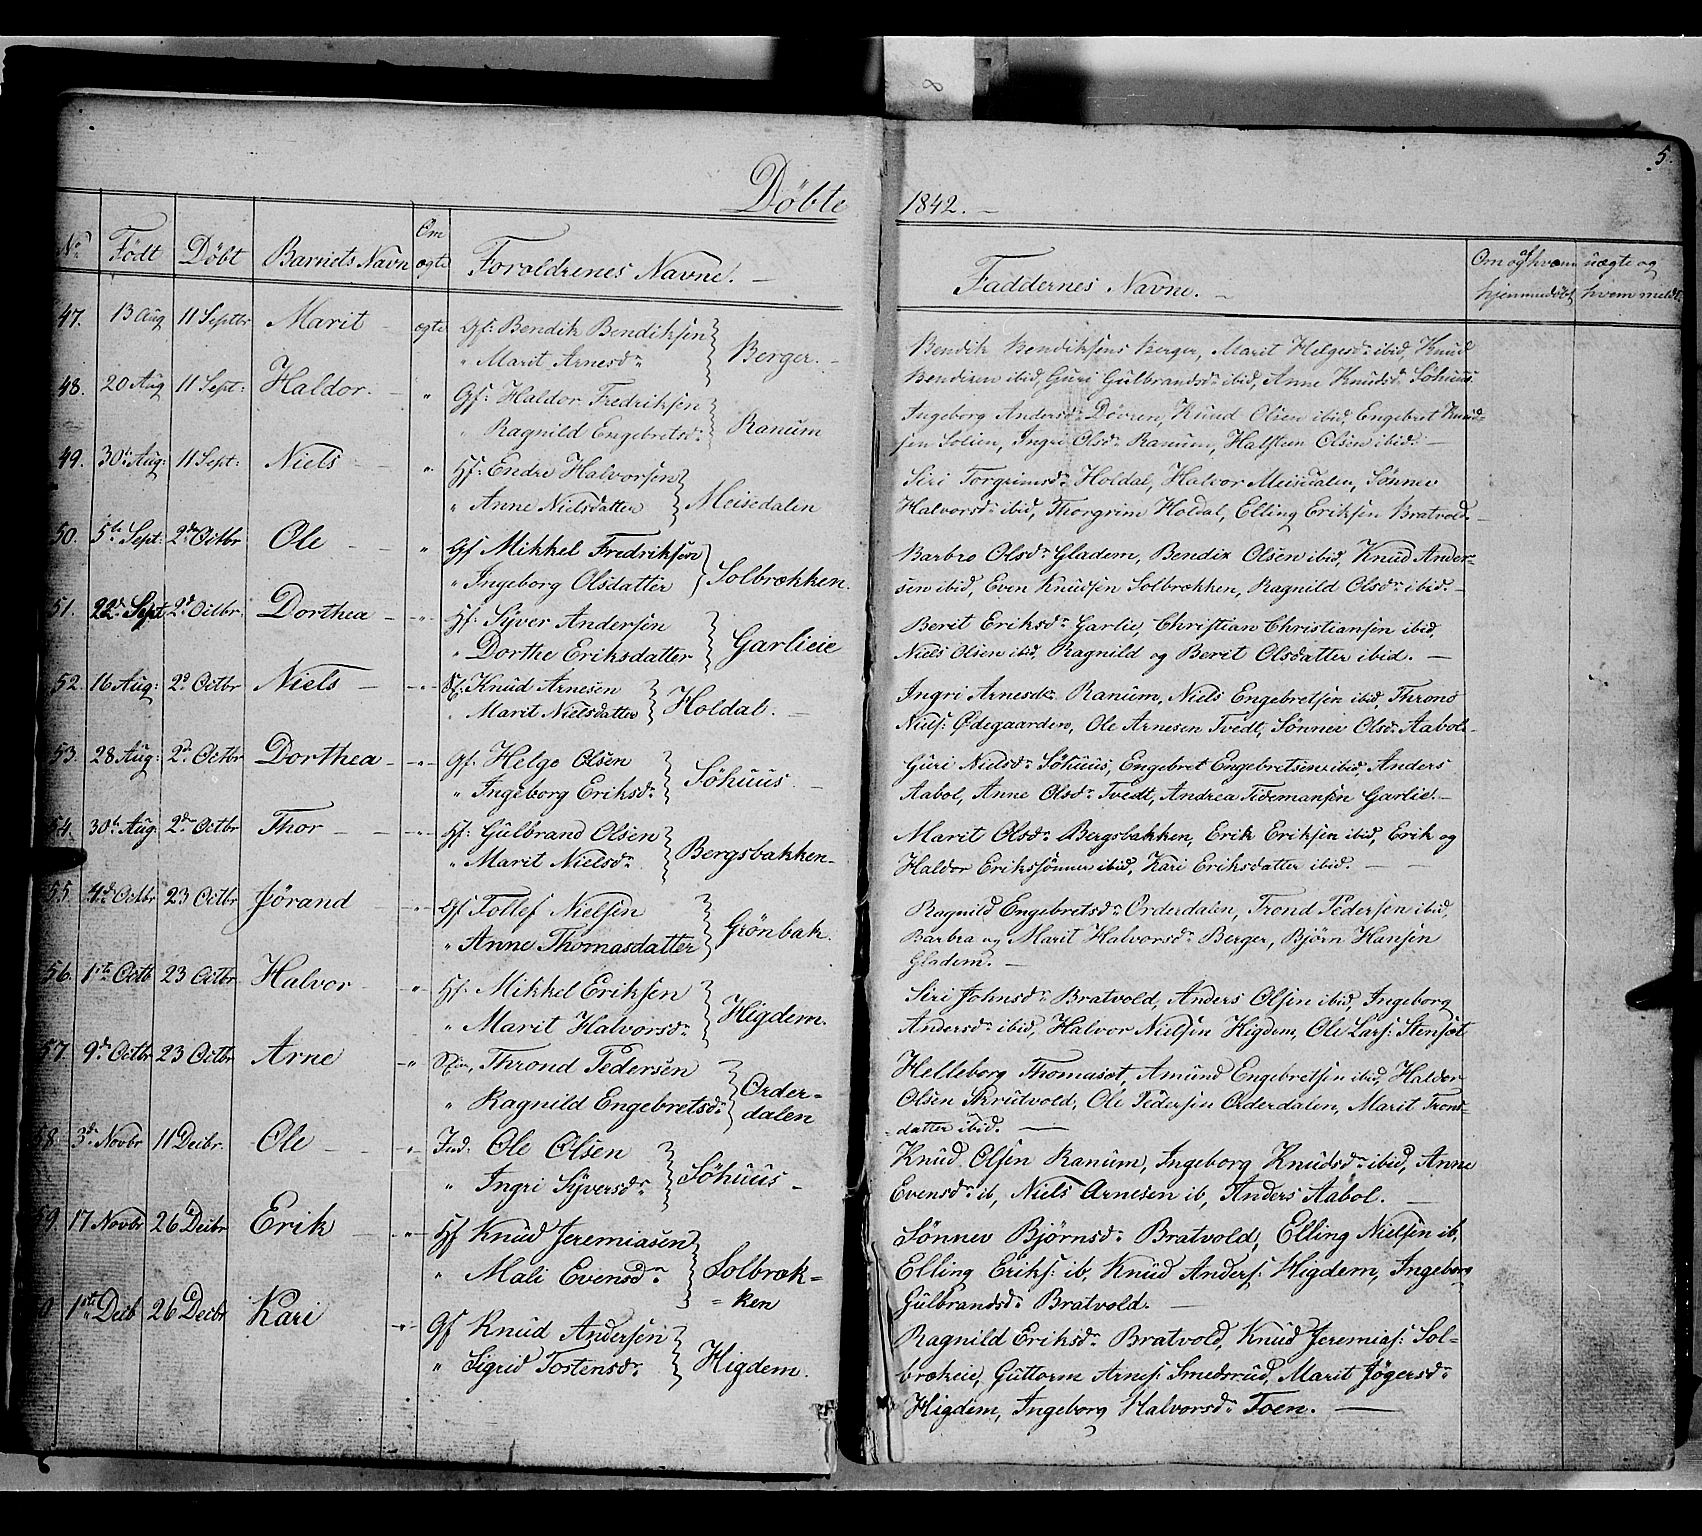 8
5.
Döbte 1842.
No. Födt Döbt Barnets Navn Om ægte Forældrenes Navne. Faddernes Navne. Om og hvem hjemmedöbt uægte og hvem meldt
47. 13 Aug 11 Septbr Marit ægte Gf: Bendik Bendiksen Berger.
" Marit Arnesdr
Bendik Bendiksens Berger, Marit Helgesdr ibid, Knud
Bendixen ibid, Guri Gulbrandsdr ibid, Anne Knudsdr Söhuus
48. 20 Aug 11 Sept: Haldor. " Gf: Haldor Fredriksen Ranum
" Ragnild Engebretsdr
Ingeborg Andersdr Dövren, Knud Olsen ibid, Engebret Knud-
sen Solien, Ingri Olsdr Ranum, Halsten Olsen ibid.
49. 30te Aug: 11 Sept: Niels " Hf: Endre Halvorsen Meisedalen
" Anne Nielsdatter
Siri Torgrimsdr Holdal, Halvor Meisdalen, Sönnev
Halvorsdr ibid, Thorgrim Holdal, Elling Eriksen Bratvold.
50. 5te Sept: 2den Octbr Ole " Gf Mikkel Fredriksen Solbrækken.
" Ingeborg Olsdatter
Barbro Olsdr Gladem, Bendix Olsen ibid, Knud Ander-
sen ibid, Even Knudsen Solbrækken, Ragnild Olsdr ibid.
51. 22d Sept 2d Octbr. Dorthea " Hf: Syver Andersen Garlieie
" Dorthe Eriksdatter
Berit Eriksdr Garlie, Christian Christiansen ibid,
Niels Olsen ibid, Ragnild og Berit Olsdatter ibid.
52. 16 Aug: 2d Octbr Niels " Knud Arnesen Holdal.
" Marit Nielsdatter
Ingri Arnesdr Ranum, Niels Engebretsen ibid, Thrond
Niels: Ödegaarden, Ole Arnesen Tvedt, Sönnev Olsdr Aabol.
53. 28 Aug: 2d Octbr Dorthea " Gf: Helge Olsen Söhuus.
" Ingeborg Eriksdr
Guri Nielsdr Söhuus, Engebret Engebretsen ibid, Anders
Aabol, Anne Olsdr Tvedt, Andrea Tidemansen Garlie.
54. 30te Aug: 2den Octbr Thor " Hf: Gulbrand Olsen Bergsbakken
" Marit Nielsdr
Marit Olsdr Bergsbakken, Erik Eriksen ibid, Erik og
Haldor Erikssönner ibid, Kari Eriksdatter ibid.
55. 4de Octbr 23 Octbr Jörand " Gf Tollef Nielsen Grönbak.
" Anne Thomasdatter
Ragnild Engebretsdr Orderdalen, Trond Pedersen ibid,
Barbra og Marit Halvorsdr Berger, Björn Hansen
Gladem.
56. 1ste Octb 23 Octbr Halvor " Hf: Mikkel Eriksen Higdem.
" Marit Halvorsdr
Siri Johnsdr Bratvold, Anders Olsen ibid, Ingeborg
Andersdr ibid, Halvor Nielsen Higdem, Ole Lars: Stensæt
57. 9de Octbr 23 Octbr Arne " Throud Pedersen Order-
" Ragnild Engebretsdr dalen
Helleborg Thomasæt, Amund Engebretsen ibid, Haldor
Olsen Skrutvold, Ole Pedersen Orderdalen, Marit Trons-
datter ibid.
58. 3de Novbr 11 Decbr. Ole " Ind: Ole Olsen Söhuus
" Ingri Syversdr
Knud Olsen Ranum, Ingeborg Knudsdr ibid, Anne
Evensdr ib, Niels Arnesen ib, Anders Aabol.
59. 17 Novbr 26 Decbr Erik " Hf Knud Jeremiasen Solbræk-
" Mali Evensdr ken
Sönnev Björnsdr Bratvold, Elling Nielsen ib,
Elling Eriks: ib, Knud Anders: Higdem, Ingeborg
Gulbrandsdr Bratvold.
0 1ste Decb 26 Decbr Kari " Gf Knud Andersen Higdem.
" Sigrid Tostensdr
Ragnild Eriksdr Bratvold, Knud Jeremias: Sol-
brækeie, Guttorm Arnes: Smedsrud, Marit Jögersdr
Higdem, Ingeborg Halvorsdr Toen.